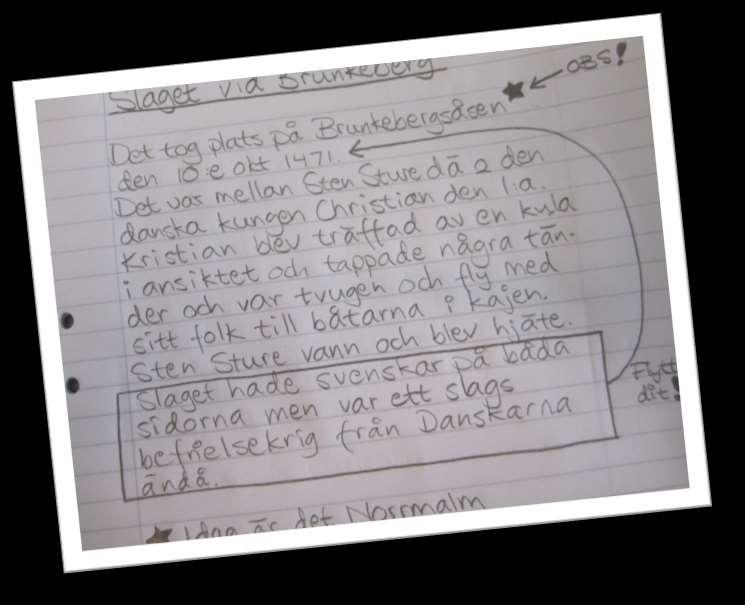 Slaget via Brunkeberg
OBS!
Det tog plats på Brunkebergsåsen
den 10:e okt 1471.
Det var mellan Sten Sture dä 2 den
danska kungen Christian den 1:a.
Kristian blev träffad av en kula
i ansiktet och tappade några tän-
der och var tvugen och fly med
sitt folk till båtarna i kajen.
Sten Sture vann och blev hjäte.
Slaget hade svenskar på båda
sidorna men var ett slags
befrielsekrig från Danskarna
ändå.
Flytt
dit!
Idag är det Norrmalm